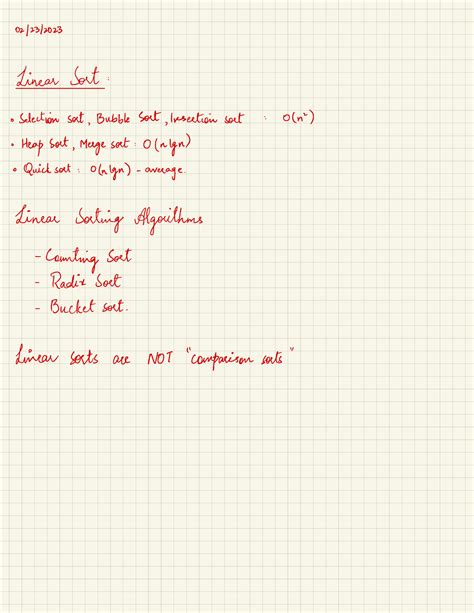 02/23/2023
Linear Sort :
• Selection sort, Bubble Sort, Insertion sort : O(n²)
• Heap Sort, Merge sort : O(n lgn)
• Quick sort : O(n lgn) - average.
Linear Sorting Algorithms
- Counting Sort
- Radix Sort
- Bucket sort.
Linear sorts are NOT "comparison sorts"